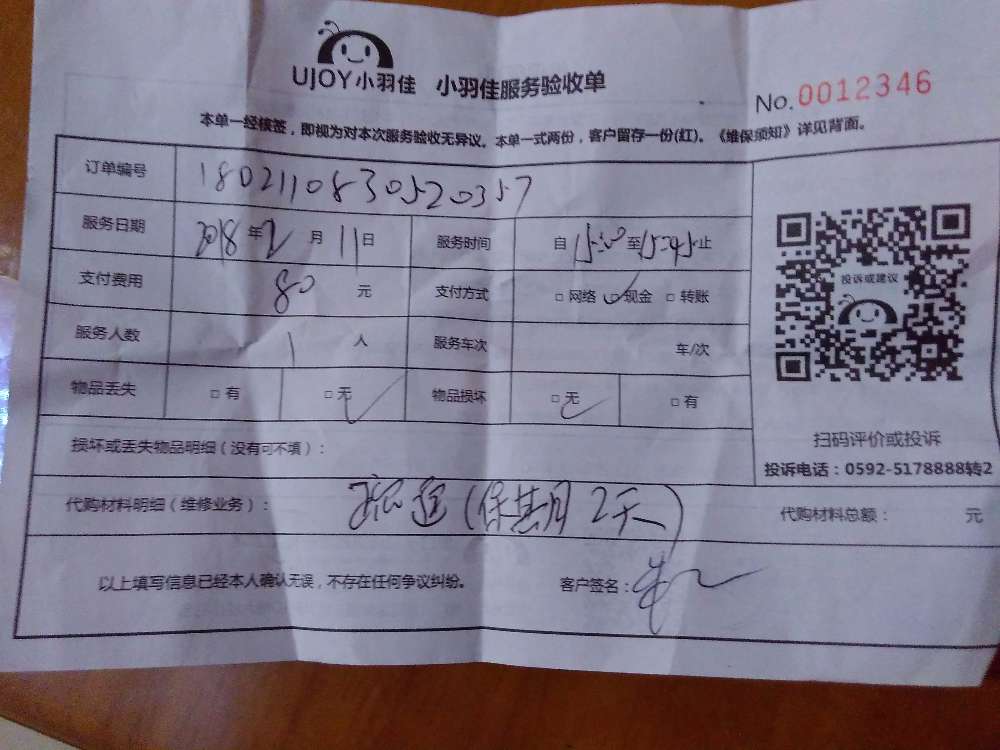 UJOY小羽佳 小羽佳服务验收单
No.0012346
本单一经核签，即视为对本次服务验收无异议。本单一式两份，客户留存一份(红)。《维保须知》详见背面。
订单编号 1802110830520357
服务日期 2018年2月11日 服务时间 自15:00至15:45止
支付费用 80元 支付方式 □网络 □现金 □转账
服务人数 1人 服务车次 车/次
物品丢失 □有 □无 物品损坏 □无 □有
投诉或建议
扫码评价或投诉
投诉电话：0592-5178888转2
损坏或丢失物品明细（没有可不填）：
代购材料明细（维修业务）： 疏通(保其月2天) 代购材料总额： 元
以上填写信息已经本人确认无误，不存在任何争议纠纷。 客户签名：